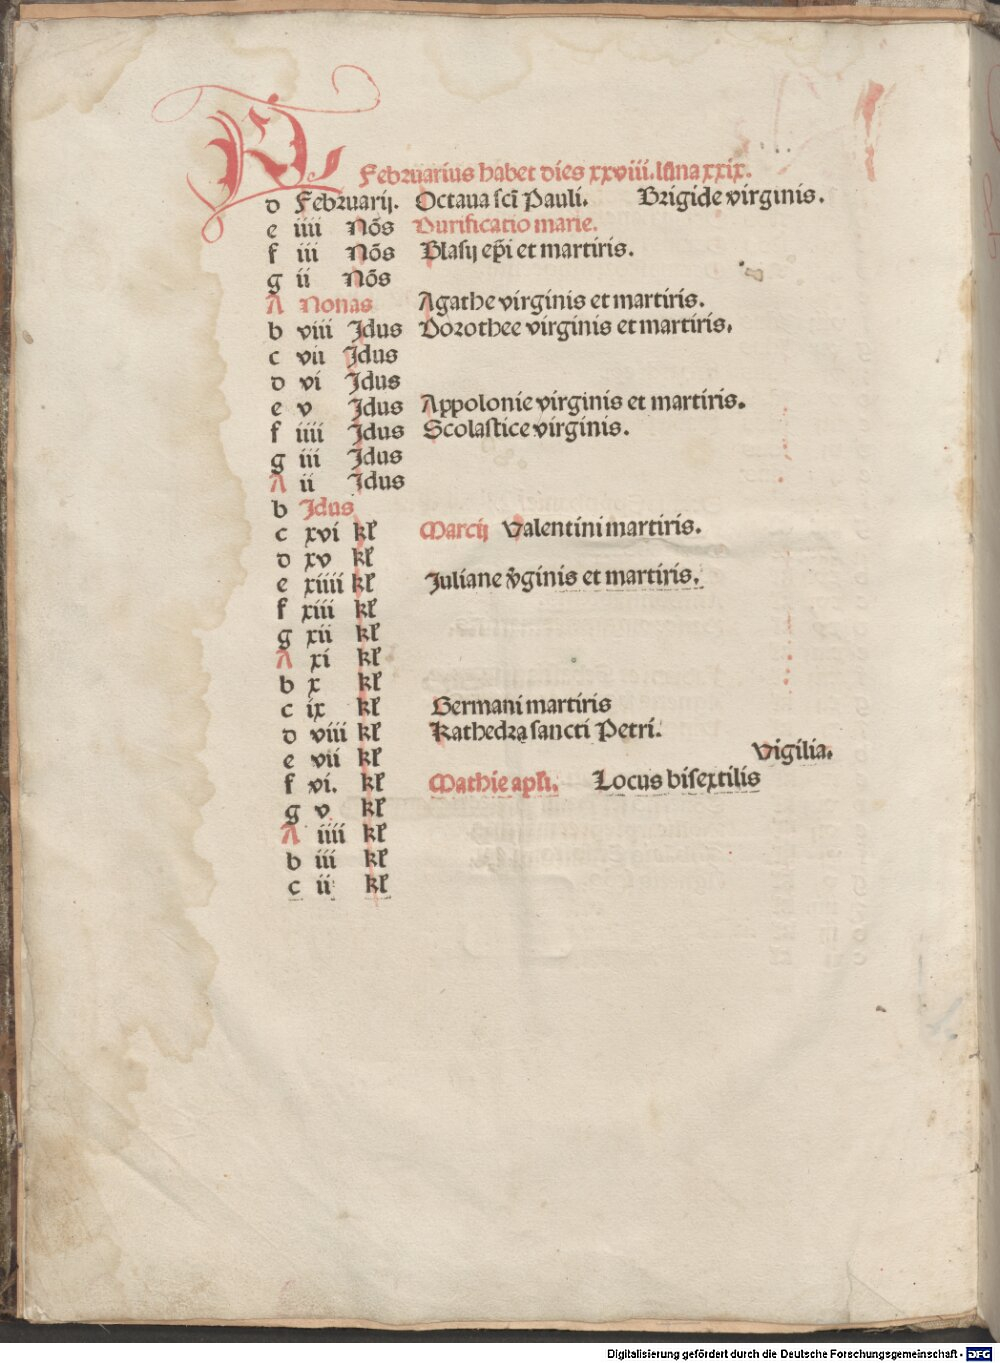 KL Februarius habet dies xxviii. luna xxix.
d Februarij. Octaua scī Pauli. Brigide virginis.
e iiii Nōs Purificatio marie.
f iii Nōs Blasij ep̄i et martiris.
g ii Nōs
A Nonas Agathe virginis et martiris.
b viii Idus Dorothee virginis et martiris.
c vii Idus
d vi Idus
e v Idus Appolonie virginis et martiris.
f iiii Idus Scolastice virginis.
g iii Idus
A ii Idus
b Idus
c xvi kl̄ Marcij Valentini martiris.
d xv kl̄
e xiiii kl̄ Iuliane v̄ginis et martiris.
f xiii kl̄
g xii kl̄
A xi kl̄
b x kl̄
c ix kl̄ Germani martiris
d viii kl̄ Kathedra sancti Petri.
e vii kl̄ Vigilia.
f vi. kl̄ Mathie apl̄i. Locus bisextilis
g v kl̄
A iiii kl̄
b iii kl̄
c ii kl̄
Digitalisierung gefördert durch die Deutsche Forschungsgemeinschaft - DFG